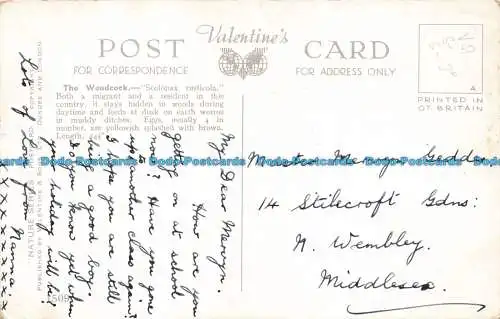 Valentine's
POST CARD
FOR CORRESPONDENCE
FOR ADDRESS ONLY
PRINTED IN
GT. BRITAIN
A
The Woodcock.—"Scolopax rusticola."
Both a migrant and a resident in this
country, it stays hidden in woods during
daytime and feeds at dusk on earth worms
in muddy ditches. Eggs, usually 4 in
number, are yellowish splashed with brown.
Length,
My Dear Mervyn.
How are you
getting on at school
now? Have you gone
up another class again?
I hope you are still
being a good boy.
Do you know yet when
your holiday will be?
Lots of Love from Nanna
x x x x x x x x
Master Mervyn Geddes
14 Stilecroft Gdns:
N. Wembley.
Middlesex.
"NATURE SERIES"
PUBLISHED BY VALENTINE & SONS LTD. DUNDEE AND LONDON